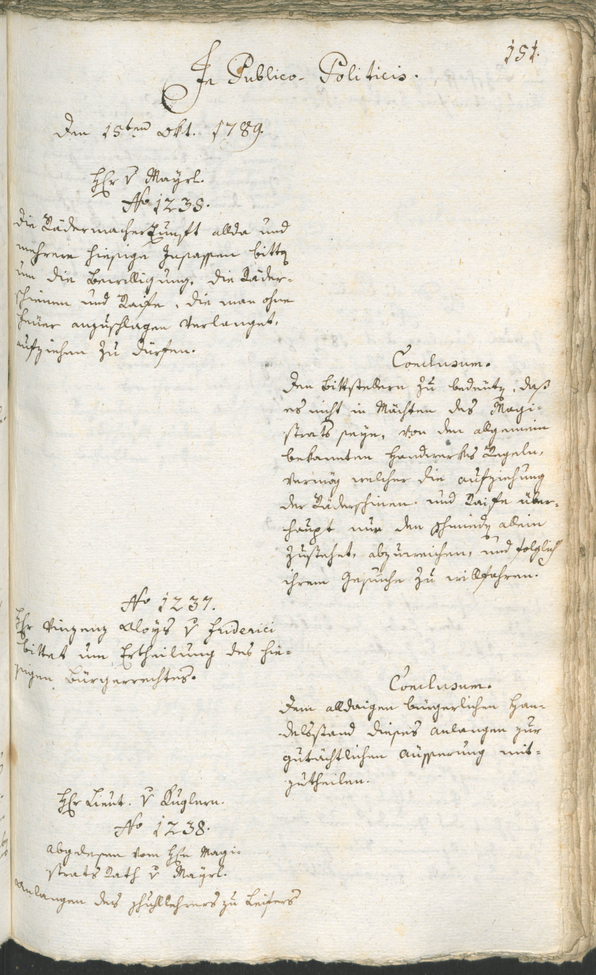 151.
In Publico-Politicis.
Den 15ten Okt. 1789.
Hr v Mayrl.
No 1235.
Die Rädermacherzunft allda und
mehrere hiesige Insassen bitten
um die Bewilligung, die Räder-
schienen und Raife, die man ohne
Feuer anzuschlagen verlanget,
aufziehen zu dürfen.
Conclusum.
Den Bittstellern zu bedeuten, daß
es nicht in Mächten des Magi-
strats seye, von den allgemein
bekannten Handwerks Regeln,
vermög welcher die aufziehung
der Räderschinen und Raife über-
haupt nur den Schmieden allein
zustehet, abzuweichen, und folglich
ihrem Gesuche zu willfahren.
No 1237.
Hr Vinzenz Aloys v
bittet um Ertheilung des hie-
sigen Bürgerrechtes.
Conclusum.
Dem alldaigen bürgerlichen Han-
delsstand dieses anlangen zur
gutächtlichen äusserung mit-
zutheilen.
Hr Lieut. v Kuglern.
No 1238.
abgelesen vom Hrn Magi-
strats Rath v Mayrl.
anlangen des Schullehrers zu Leifers